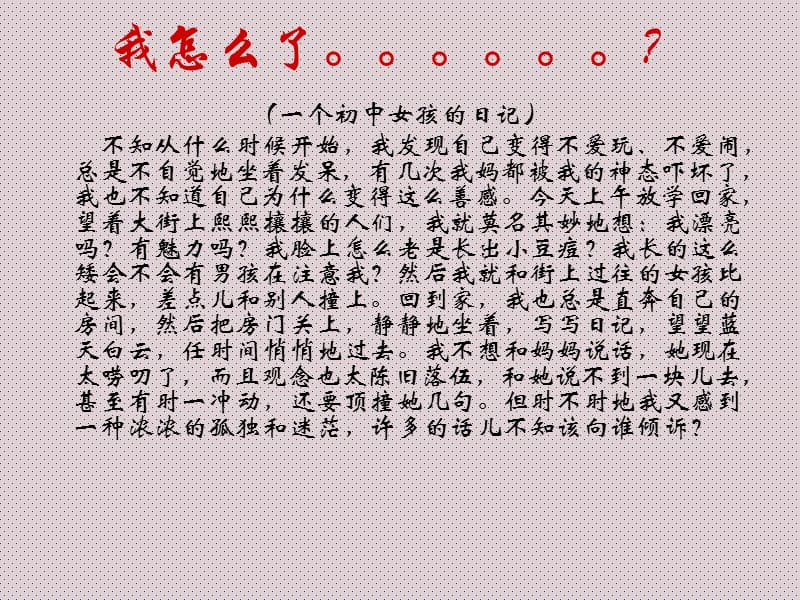 我怎么了。。。。。。?
(一个初中女孩的日记)
不知从什么时候开始，我发现自己变得不爱玩、不爱闹，
总是不自觉地坐着发呆，有几次我妈都被我的神态吓坏了，
我也不知道自己为什么变得这么善感。今天上午放学回家，
望着大街上熙熙攘攘的人们，我就莫名其妙地想：我漂亮
吗？有魅力吗？我脸上怎么老是长出小豆痘？我长的这么
矮会不会有男孩在注意我？然后我就和街上过往的女孩比
起来，差点儿和别人撞上。回到家，我也总是直奔自己的
房间，然后把房门关上，静静地坐着，写写日记，望望蓝
天白云，任时间悄悄地过去。我不想和妈妈说话，她现在
太唠叨了，而且观念也太陈旧落伍，和她说不到一块儿去，
甚至有时一冲动，还要顶撞她几句。但时不时地我又感到
一种浓浓的孤独和迷茫，许多的话儿不知该向谁倾诉？